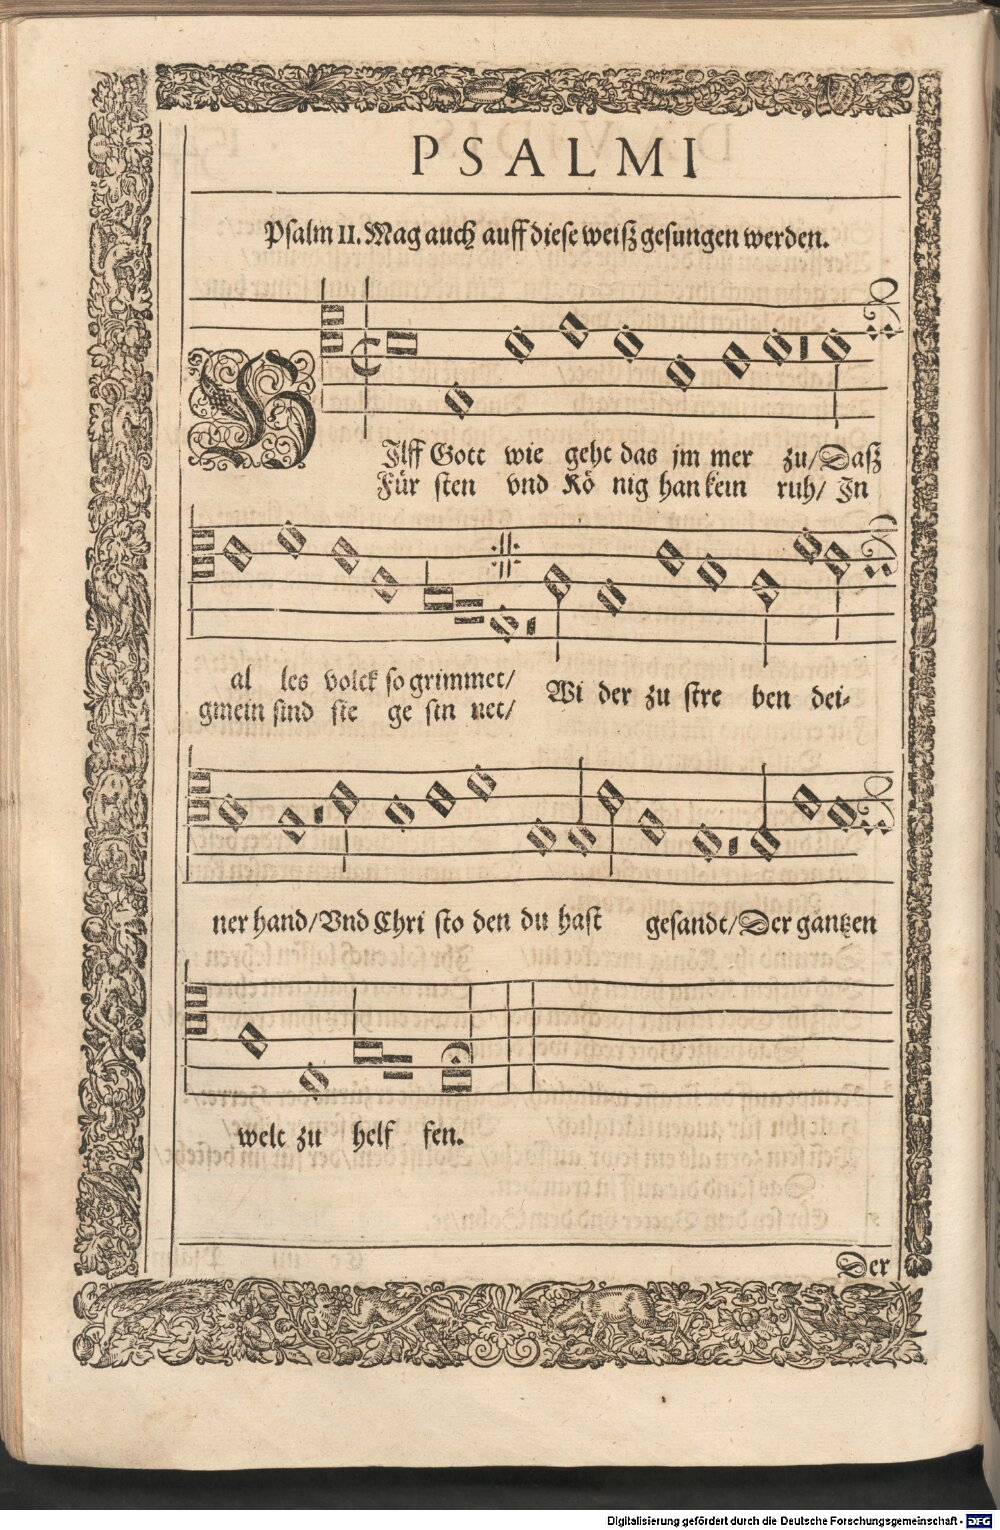 PSALMI
Psalm II. Mag auch auff diese weiß gesungen werden.
HJlff Gott wie geht das jm mer zu/ Daß
Für sten vnd Kö nig han kein ruh/ In
al les volck so grimmet/ Wi der zu stre ben dei-
gmein sind sie ge sin net/
ner hand/ Vnd Chri sto den du hast gesandt/ Der gantzen
welt zu helf fen.
Der
Digitalisierung gefördert durch die Deutsche Forschungsgemeinschaft - DFG